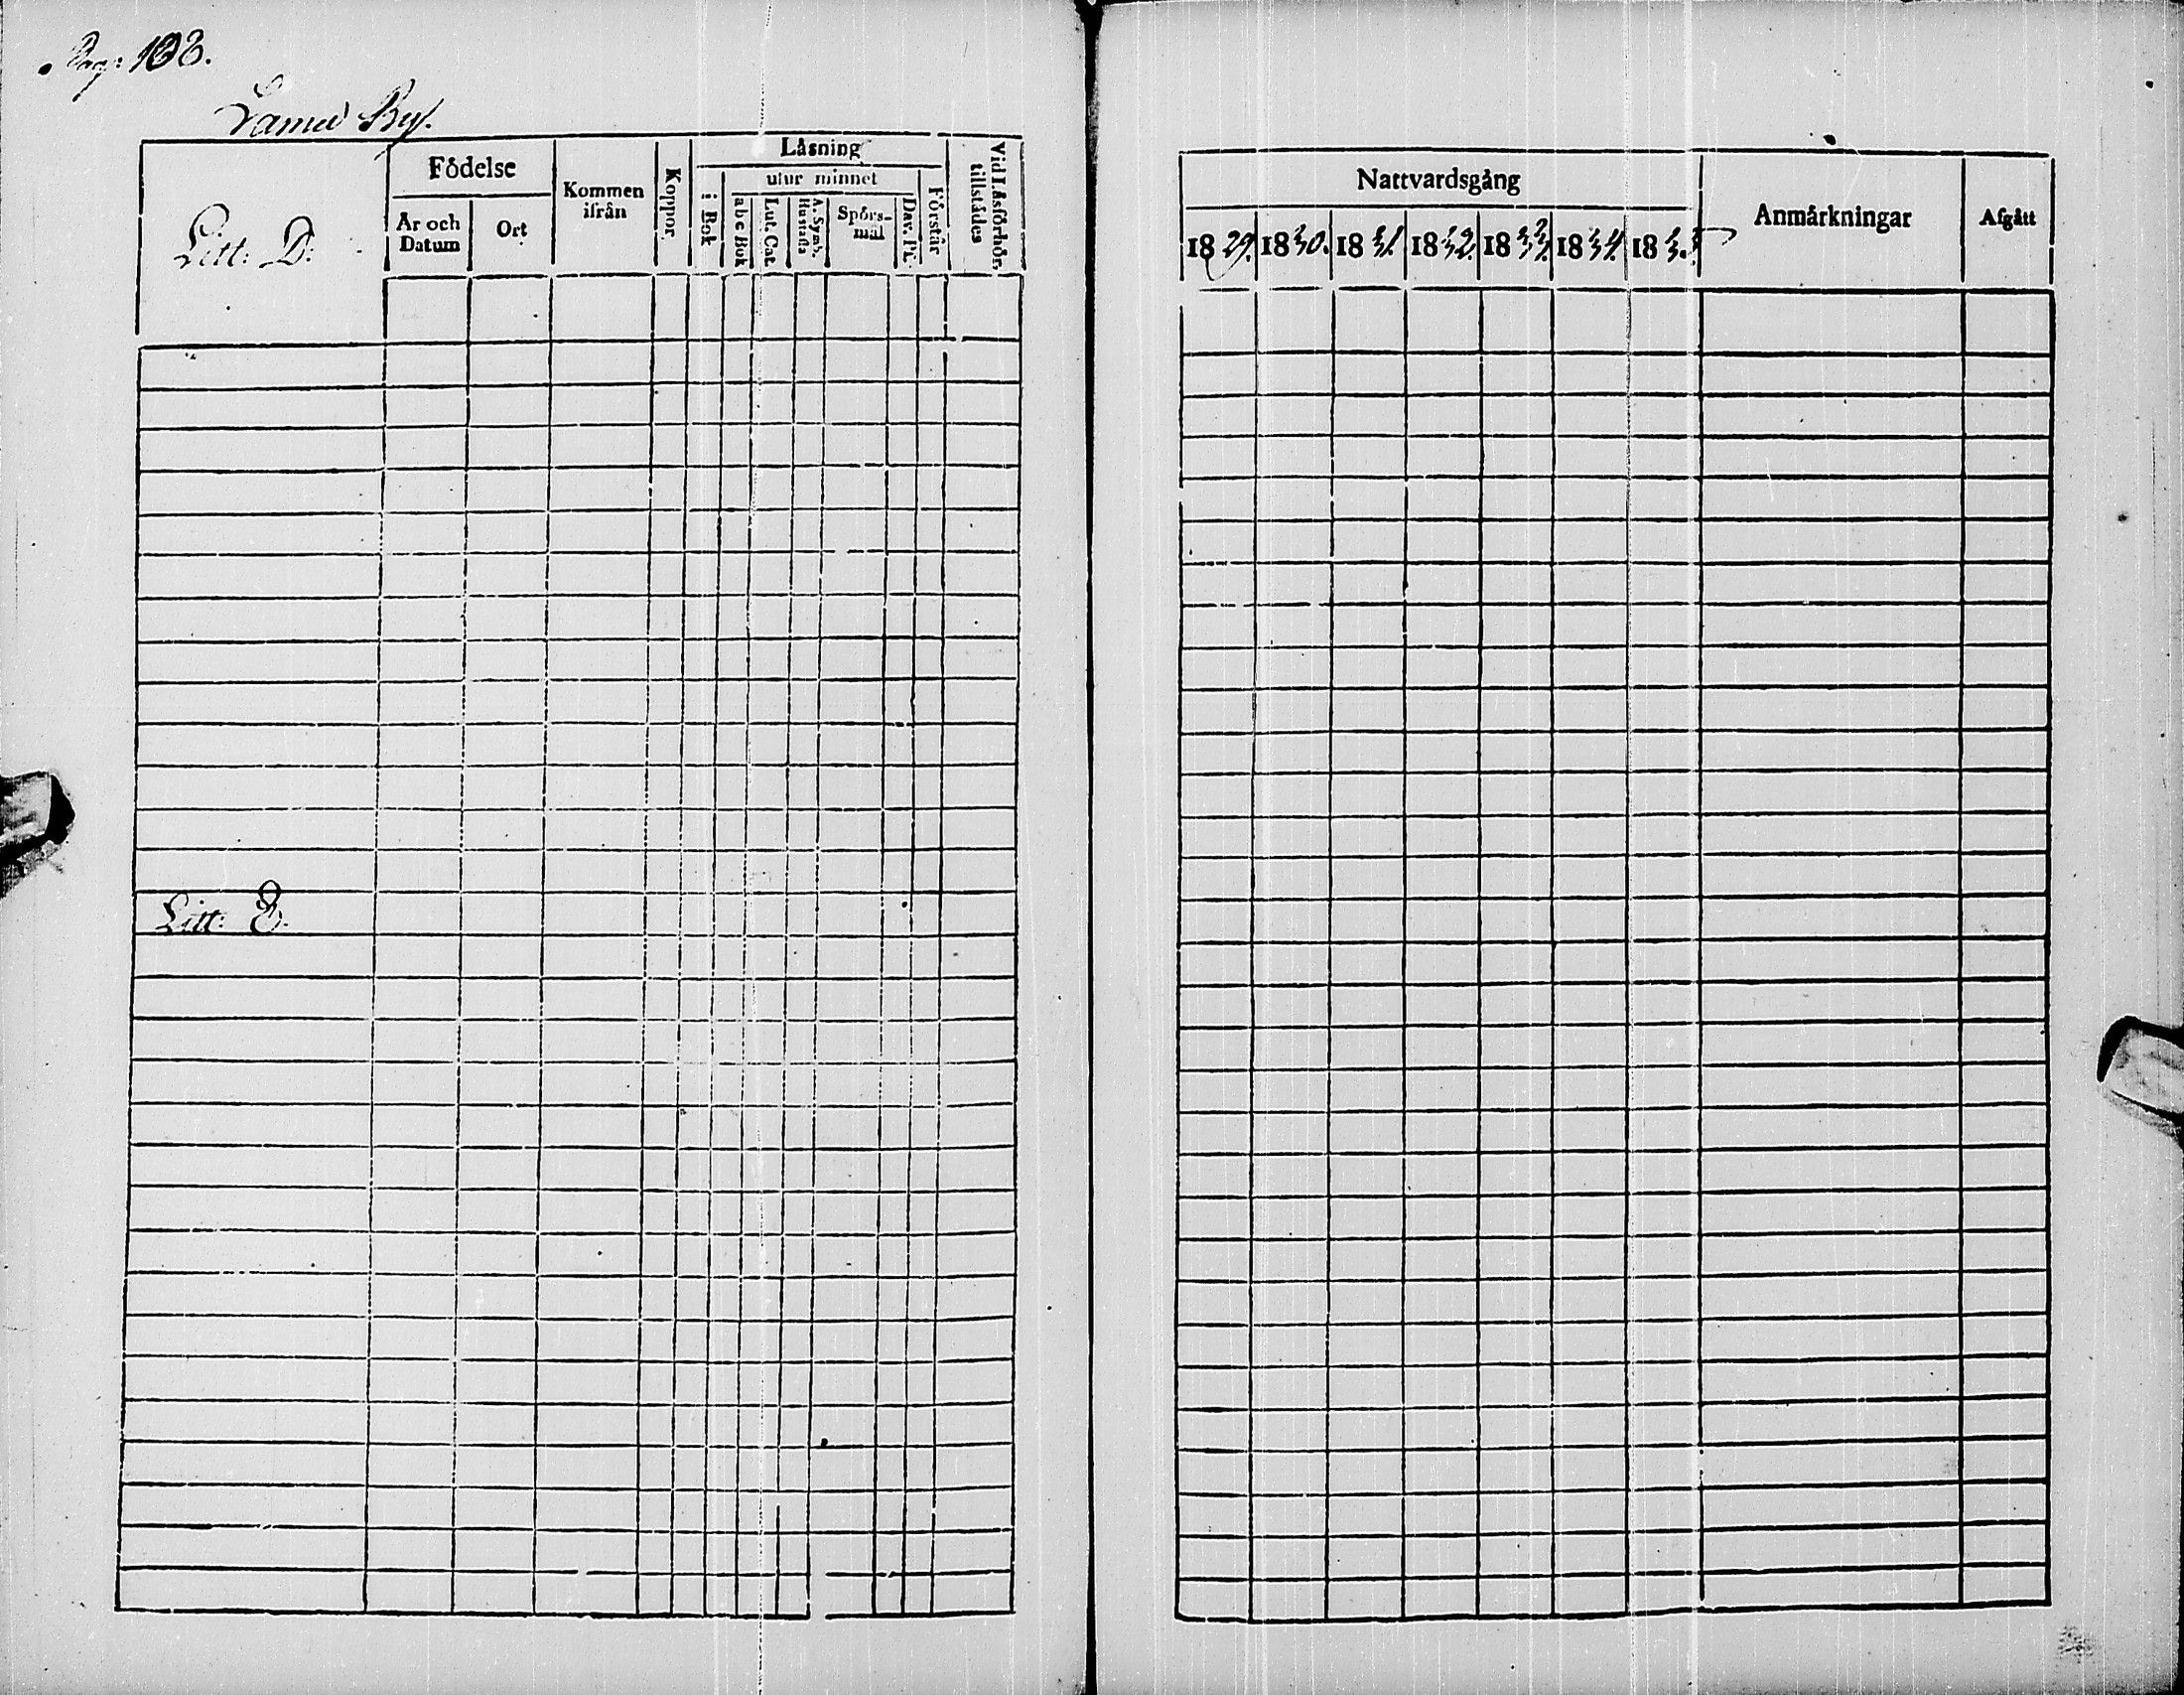 Pag: 108.
Samma By.
Litt: D:
Födelse
År och Datum
Ort
Kommen ifrån
Koppor.
Läsning
i Bok
utur minnet
abc Bok
Lut. Cat.
A. Symb. Hustafla
Spörsmål
Dav. Ps.
Förstår
Vid Läsförhör. tillstädes
Litt: E.
Nattvardsgång
Anmärkningar
Afgått
1829. 1830. 1831. 1832. 1833. 1834. 1835